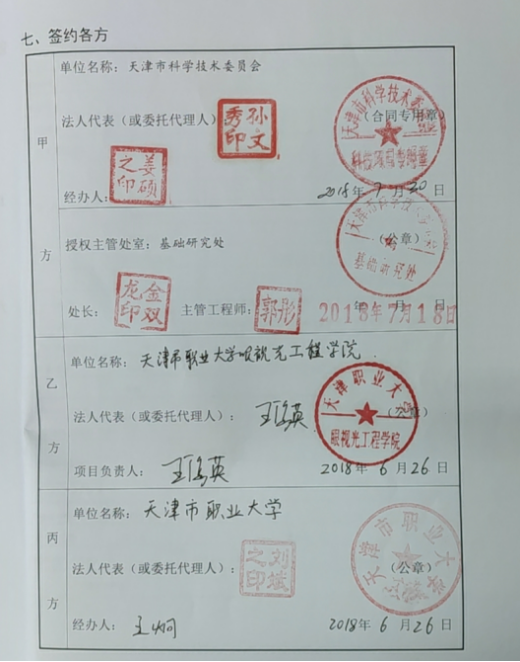 七、签约各方
甲
方
单位名称：天津市科学技术委员会
法人代表（或委托代理人）
孙文
秀印
（合同专用章）
天津市科学技术委员会
经办人：
姜硕
之印
2018年7月20日
授权主管处室：基础研究处
（公章）
基础研究处
处长：
金双
龙印
主管工程师：
郭彤
年 月 日
2018年7月18日
乙
方
单位名称：天津市职业大学眼视光工程学院
法人代表（或委托代理人）：
（公章）
天津职业大学
眼视光工程学院
项目负责人：
2018年6月26日
丙
方
单位名称：天津市职业大学
法人代表（或委托代理人）：
刘斌
之印
（公章）
天津市职业大学
经办人：
2018年6月26日